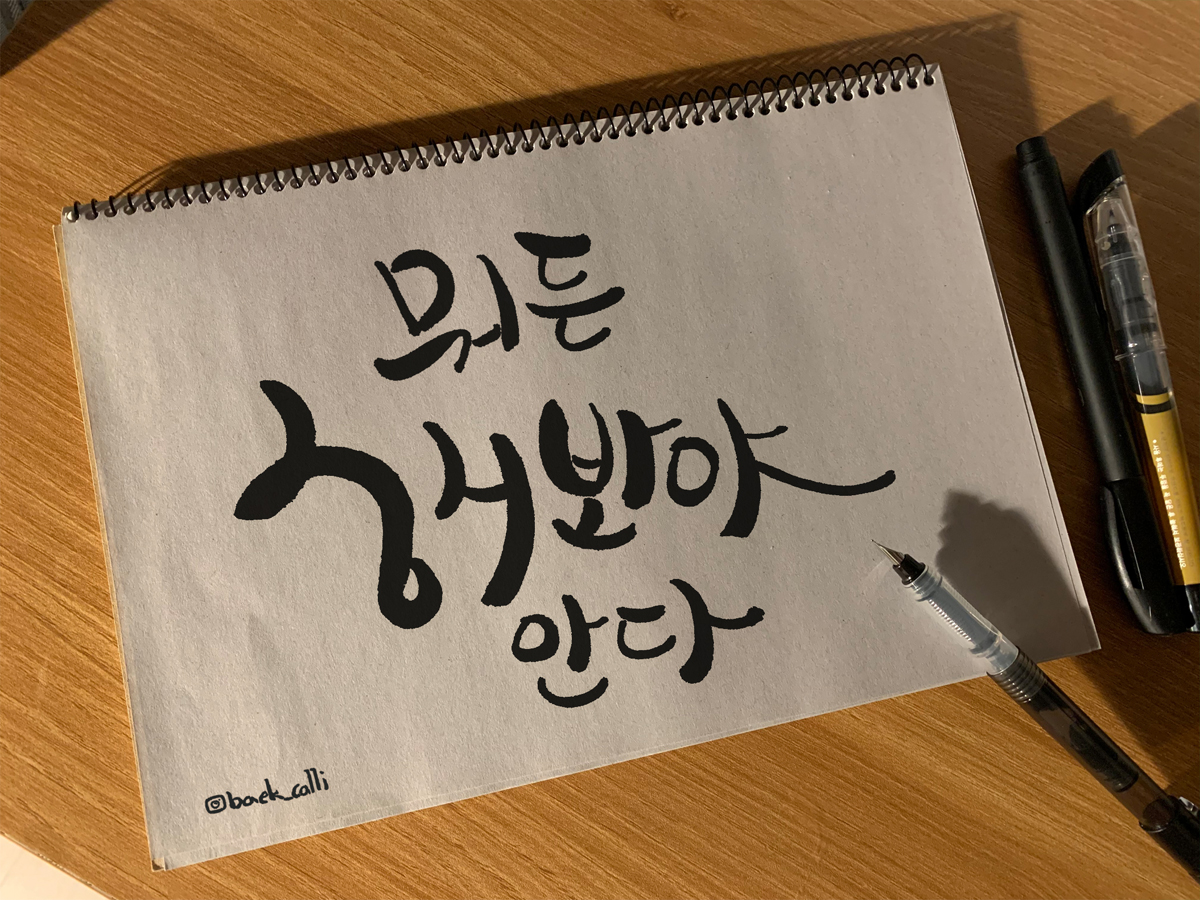 뭐든
해봐야
안다
@baek_calli